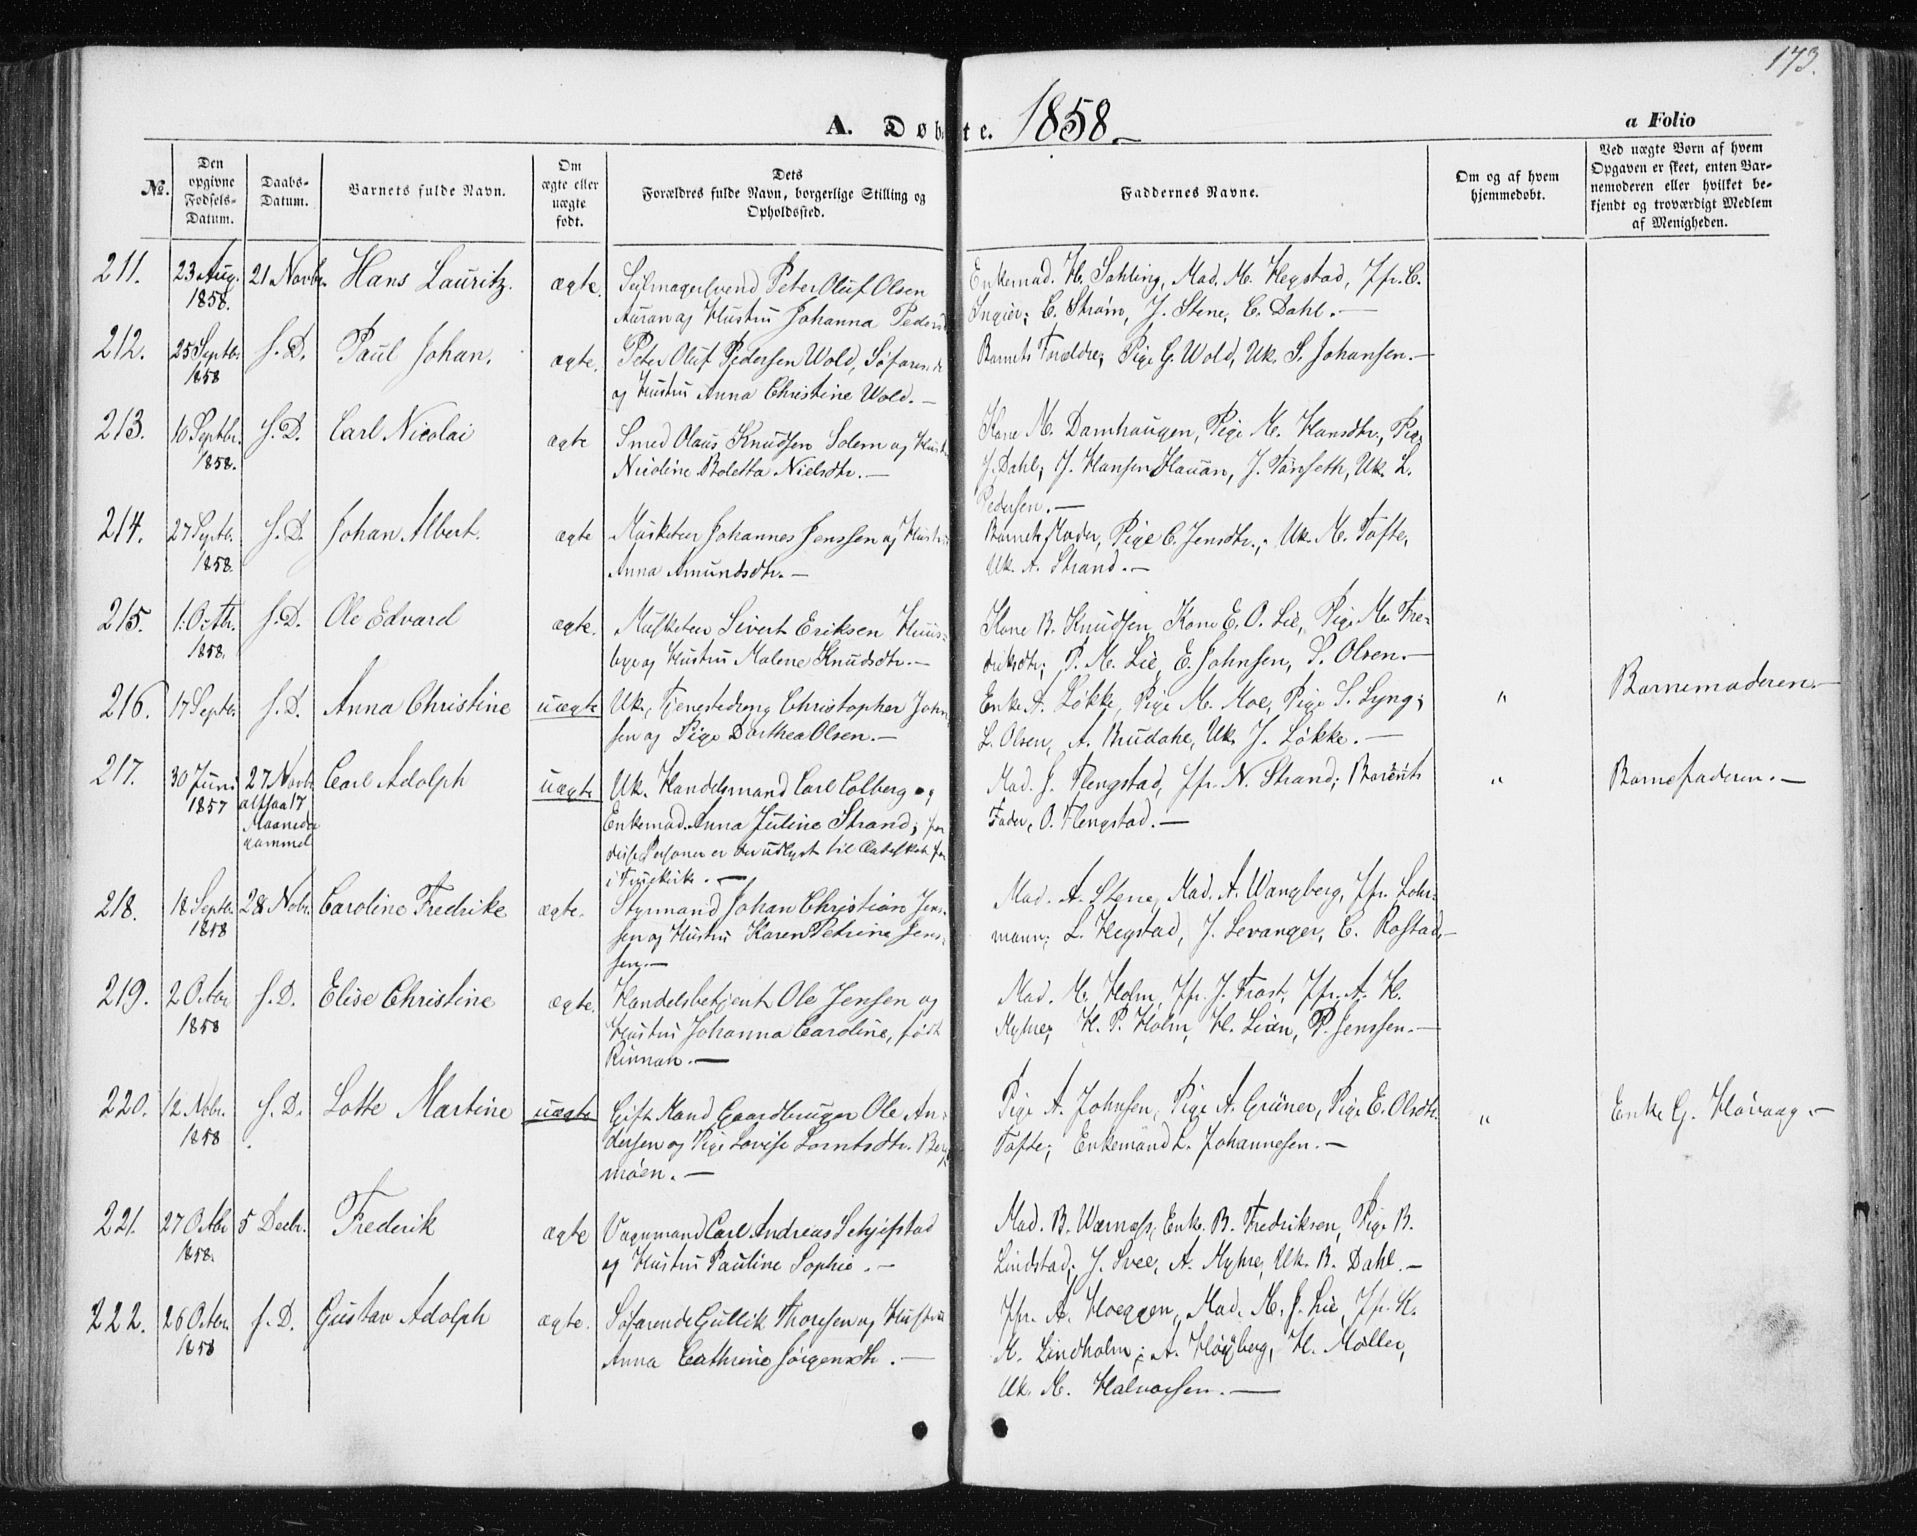 173.
A. Døbte. 1858.
a Folio
No.
Den opgivne Fødsels-Datum.
Daabs-Datum.
Barnets fulde Navn.
Om ægte eller uægte født.
Dets Forældres fulde Navn, borgerlige Stilling og Opholdssted.
Faddernes Navne.
Om og af hvem hjemmedøbt.
Ved uægte Born af hvem Opgaven er skeet, enten Barnemoderen eller hvilket bekjendt og troværdigt Medlem af Menigheden.
211. 23 Aug. 1858. 21 Novbr. Hans Lauritz. ægte. Seilmagersvend Peter Oluf Olsen
Auran og Hustru Johanna Peders
Enkemad. H. Sahling, Mad. M. Hegstad, Jfr. C.
C. Strøm, J. Stene, C. Dahl.—
212. 25 Septbr. 1858 s. D. Paul Johan. ægte. Peter Oluf Pedersen Wold, Søfarende
og Hustru Anna Christine Wold.—
Barnets Forældre, Pige G. Wold, Uk. S. Johansen.—
213. 10 Septbr. 1858. s. D. Carl Nicolai ægte Smed Olaus Knudsen Solem og Hust
Nicoline Boletta Nielsdtr.—
Kone M. Damhaugen, Pige M. Hansdtr., Pige
J. Dahl; J. Hansen Hauan, J. Tønseth, Uk. L.
Pedersen.—
214. 27 Septbr. 1858. s. D. Johan Albert. ægte Musketeer Johannes Jenssen og Hustru
Anna Amundsdtr.—
Barnets Moder, Pige C. Jensdtr.; Uk. M. Tofte,
Uk. A. Strand.—
215. 1. Octbr. 1858. s. D. Ole Edvard ægte. Musketeer Sivert Eriksen Huus-
bye og Hustru Malene Knudsdtr.—
Kone B. Knudsen, Kone E. O. Lie, Pige M. Fre-
driksdtr; P. M. Lie, E. Johnsen, P. Olsen.—
216. 17 Septbr. s. D. Anna Christine uægte Uk., Tjenestedreng Christopher John-
sen og Pige Dorthea Olsen.—
Enke A. Løkke, Pige M. Moe, Pige S. Lyng;
L. Olsen, A. Brudahl, Uk. J. Løkke.—
" Barnemoderen.—
217. 30 Juni 1857 27 Novbr. altsaa 17 Maaneder gammel Carl Adolph uægte Uk. Handelsmand Carl Colberg og
Enkemad. Anna Juline Strand; for
disse Personer er der udlyst til Ægteskab
i Fruekirke.—
Mad. J. Flengstad, Jfr. N. Strand; Barnets
Fader, O. Flengstad.—
" Barnefaderen.—
218. 18 Septbr. 1858 28 Nobr. Caroline Fredrike ægte. Styrmand Johan Christian Jens-
sen og Hustru Karen Petrine Jens-
sen.—
Mad. A. Stene, Mad. A. Wangberg, Jfr. Lohr-
mann; L. Hegstad, J. Levanger, C. Rostad.—
219. 2 Octbr 1858 s. D. Elise Christine ægte. Handelsbetjent Ole Jensen og
Hustru Johanna Caroline, født
Rinnan.—
Mad. M. Holm, Jfr. J. Trost, Jfr. A. H.
Myhre; H. P. Holm, H. Lian, P. Jenssen.—
220. 12 Nobr. 1858 s. D. Lotte Martine uægte Gift Mand Gaardbruger Ole An-
dersen og Pige Lovise Lorntsdtr. Berg
möen.—
Pige A. Johnsen, Pige A. Grüner, Pige E. Olsdtr.
Tofte; Enkemand L. Johannesen.—
" Enke G. Havaag.—
221. 27 Octbr 1858. 5 Decbr. Frederik ægte Vognmand Carl Andreas Schjefstad
og Hustru Pauline Sophie.—
Mad. B. Wærnæss, Enke B. Fredriksen, Pige B.
Lindstad; J. Svee, A. Myhre, Uk. B. Dahl.—
222. 26 Octbr. 1858 s. D. Gustav Adolph ægte. Søfarende Gullik Thoresen og Hustru
Anna Cathrine Jörgensdtr.—
Jfr. A. Hoeggen, Mad. M. J. Lie, Jfr. K.
M. Lindholm; A. Høyberg, H. Møller,
Uk. M. Halvorsen.—